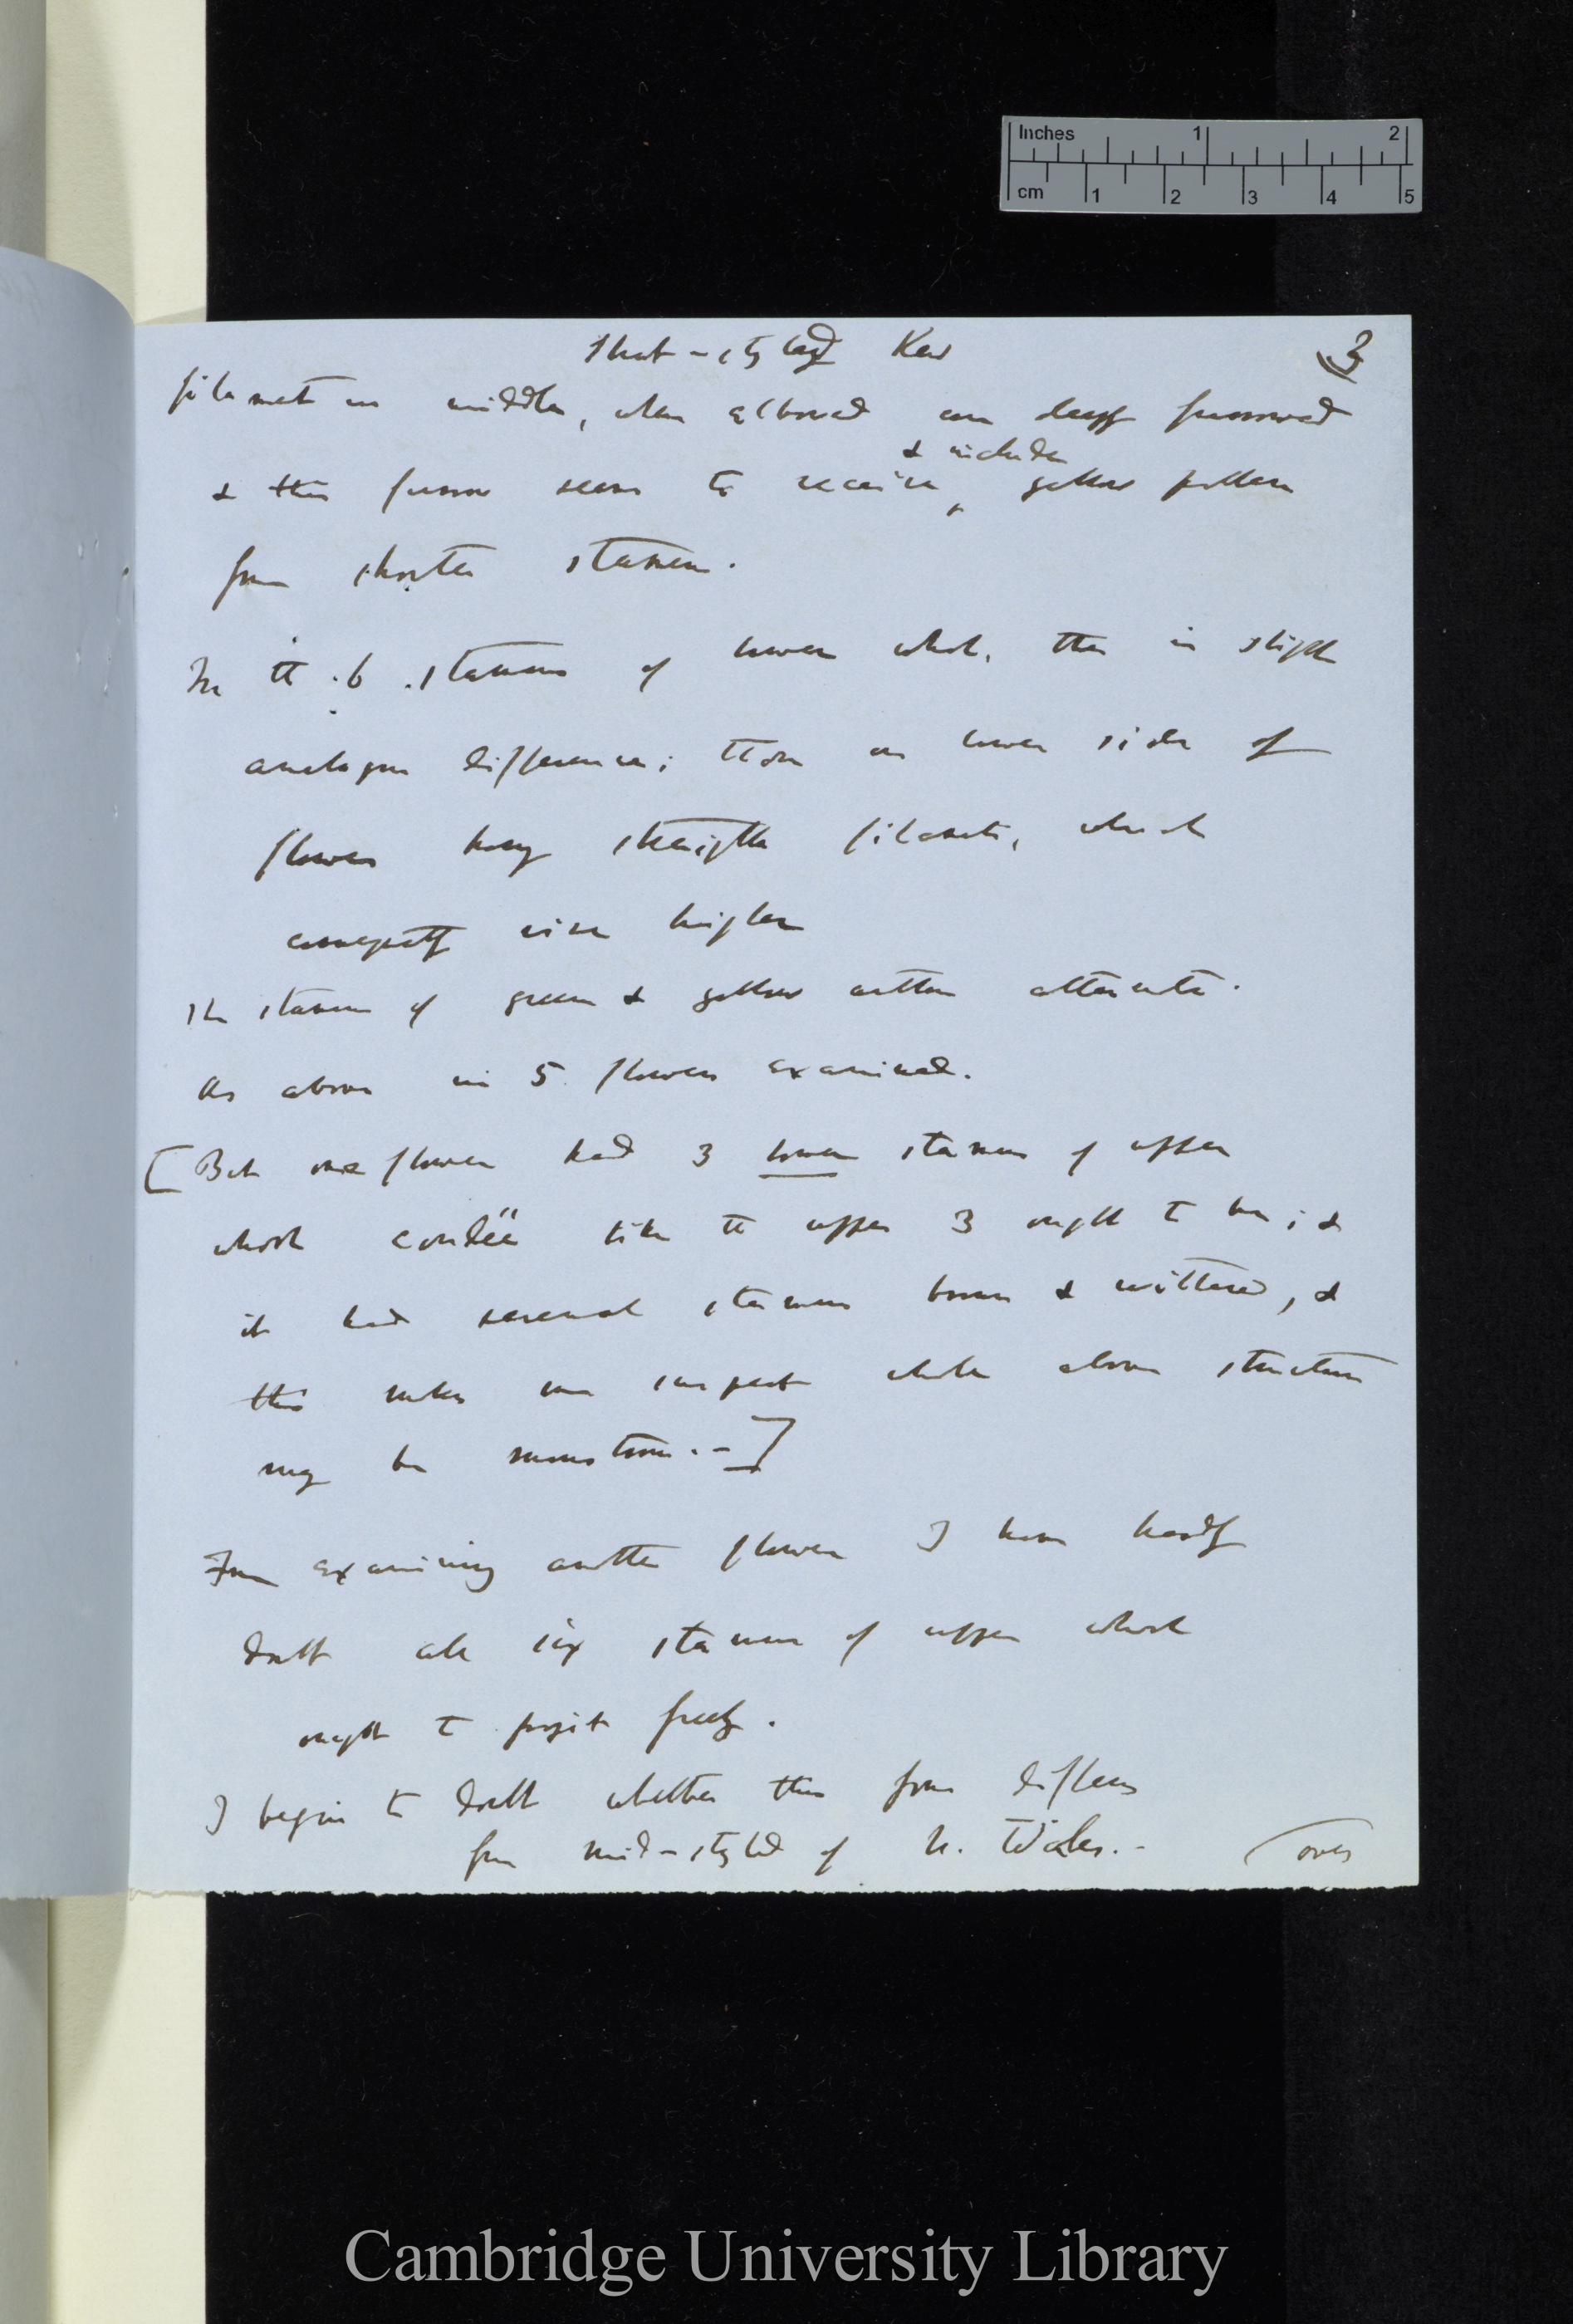 Inches 1 2
cm 1 2 3 4 5
Short-styled Kew 3
filament in middle, when elbowed are deeply furrowed
& include
& this furrow seems to receive yellow pollen
from shorter stamens.
In the 6 stamens of lower whorl, there is slight
analogous difference; those on lower side of
flower having straighter filaments, which
consequently rise higher
The stamens of green & yellow anthers alternate.
As above in 5 flowers examined.
[But one flower had 3 lower stamens of upper
whorl like the upper 3 ought to be; &
it had several stamens brown & withered, &
this makes me suspect whole above structure
may be monstrous.—]
From examining another flower I have hardly
doubt all six stamens of upper whorl
ought to project freely.
I begin to doubt whether this form differs
from mid-styled of N. Wales.— (over
Cambridge University Library